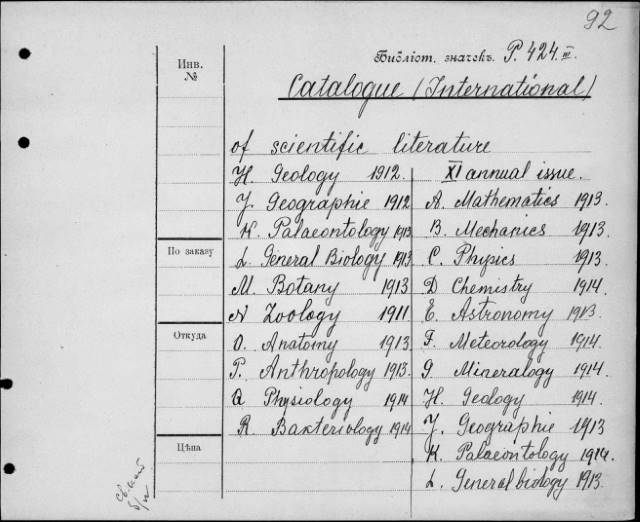 92
Библіот. значекъ. P. 424. III.
Инв.
№
Catalogue (International)
of scientific literature
H. Geology 1912.
J. Geographie 1912
K. Palaeontology 1913
L. General Biology 1913.
M. Botany 1913
N Zoology 1911.
O. Anatomy 1913.
P. Anthropology 1913.
Q Physiology 1914
R. Bakteriology 1914
XI annual issue.
A. Mathematics 1913.
B. Mechanics 1913
C. Physics 1913.
D Chemistry 1914.
E. Astronomy 1913.
F. Meteorology 1914.
G Mineralogy 1914.
H. Geology 1914.
J. Geographie 1913
K. Palaeontology 1914.
L. General biology 1913.
По заказу
Откуда
Цѣна